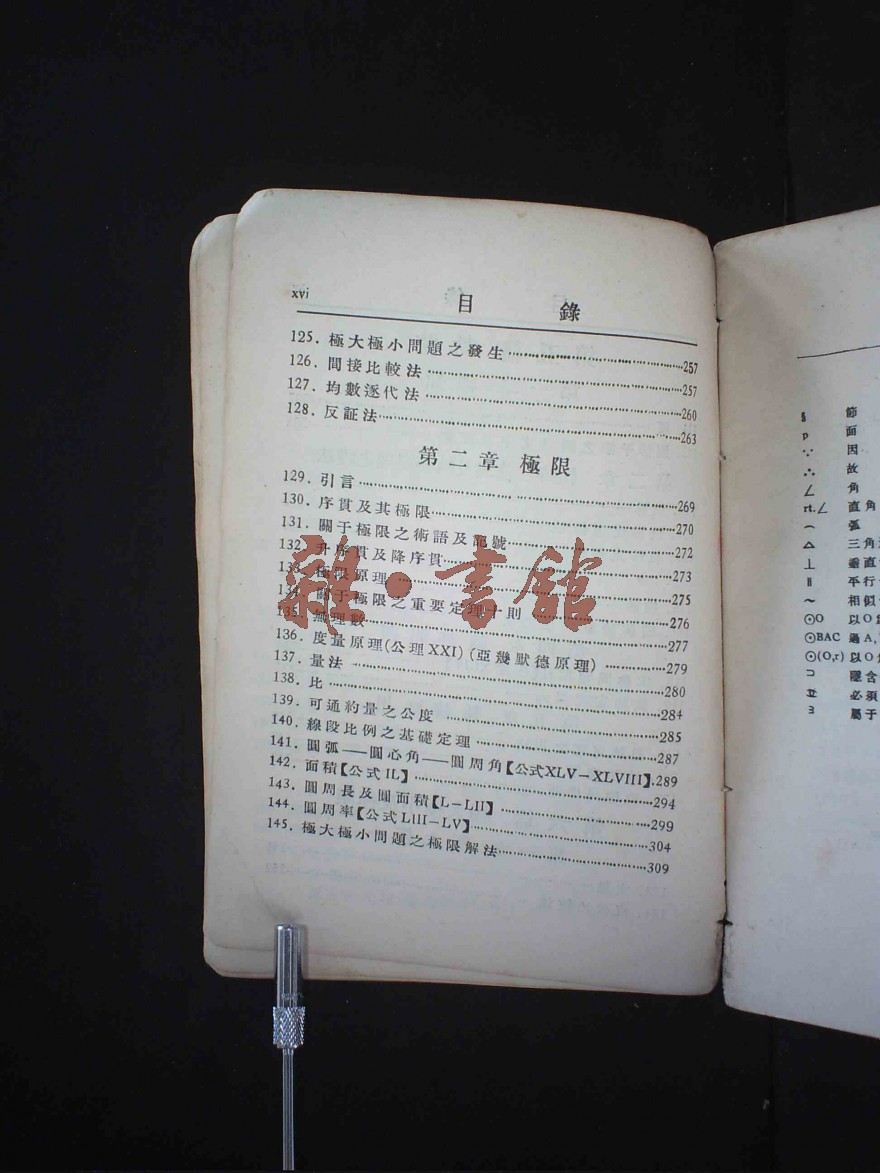 xvi
目 錄
125. 極大極小問題之發生……257
126. 間接比較法……257
127. 均數逐代法……260
128. 反証法……263
第二章 極限
129. 引言……269
130. 序貫及其極限……270
131. 關于極限之術語及記號……272
132. 升序貫及降序貫……273
133. 極限原理……275
134. 關于極限之重要定理十則……276
135. 無理數……277
136. 度量原理(公理XXI)(亞幾默德原理)……279
137. 量法……280
138. 比……284
139. 可通約量之公度……285
140. 線段比例之基礎定理……287
141. 圓弧——圓心角——圓周角【公式XLV—XLVIII】.289
142. 面積【公式IL】……294
143. 圓周長及圓面積【L—LII】……299
144. 圓周率【公式LIII—LV】……304
145. 極大極小問題之極限解法……309
雜·書館
§ 節
p 面
∵ 因
∴ 故
∠ 角
rt.∠ 直角
⌢ 弧
△ 三角
⊥ 垂直
∥ 平行
～ 相似
⊙O 以O
⊙BAC 過A,
⊙(O,r) 以O
⊐ 隱含
必須
∃ 屬于